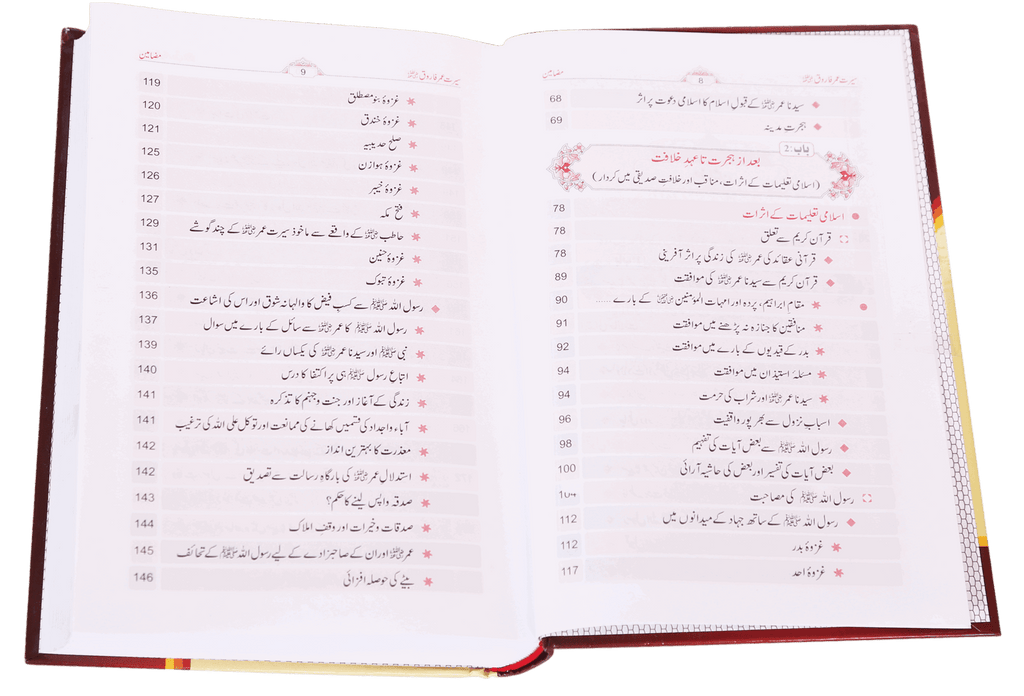 سیرت عمر فاروق رضی اللہ عنہ
8
مضامین
سیدنا عمر رضی اللہ عنہ کے قبولِ اسلام کا اسلامی دعوت پر اثر 68
ہجرتِ مدینہ 69
باب: 2
بعد از ہجرت تا عہدِ خلافت
(اسلامی تعلیمات کے اثرات، مناقب اور خلافتِ صدیقی میں کردار)
اسلامی تعلیمات کے اثرات 78
قرآن کریم سے تعلق 78
قرآنی عقائد کی عمر رضی اللہ عنہ کی زندگی پر اثر آفرینی 78
قرآن کریم سے سیدنا عمر رضی اللہ عنہ کی موافقت 89
مقام ابراہیم، پردہ اور امہات المؤمنین رضی اللہ عنہن کے بارے ...... 90
منافقین کا جنازہ نہ پڑھنے میں موافقت 91
بدر کے قیدیوں کے بارے میں موافقت 92
مسئلۂ استیذان میں موافقت 94
سیدنا عمر رضی اللہ عنہ اور شراب کی حرمت 94
اسباب نزول سے بھرپور واقفیت 96
رسول اللہ ﷺ سے بعض آیات کی تفہیم 98
بعض آیات کی تفسیر اور بعض کی حاشیہ آرائی 100
رسول اللہ ﷺ کی مصاحبت 104
رسول اللہ ﷺ کے ساتھ جہاد کے میدانوں میں 112
غزوۂ بدر 112
غزوۂ احد 117
سیرت عمر فاروق رضی اللہ عنہ
9
مضامین
غزوۂ بنو مصطلق 119
غزوۂ خندق 120
صلح حدیبیہ 121
غزوۂ ہوازن 125
غزوۂ خیبر 126
فتح مکہ 127
حاطب رضی اللہ عنہ کے واقعے سے ماخوذ سیرت عمر رضی اللہ عنہ کے چند گوشے 129
غزوۂ حنین 131
غزوۂ تبوک 135
رسول اللہ ﷺ سے کسبِ فیض کا والہانہ شوق اور اس کی اشاعت 136
رسول اللہ ﷺ کا عمر رضی اللہ عنہ سے سائل کے بارے میں سوال 137
نبی ﷺ اور سیدنا عمر رضی اللہ عنہ کی یکساں رائے 139
اتباع رسول ﷺ ہی پر اکتفا کا درس 140
زندگی کے آغاز اور جنت و جہنم کا تذکرہ 141
آباء و اجداد کی قسمیں کھانے کی ممانعت اور توکل علی اللہ کی ترغیب 141
معذرت کا بہترین انداز 142
استدلالِ عمر رضی اللہ عنہ کی بارگاہِ رسالت سے تصدیق 142
صدقہ واپس لینے کا حکم؟ 143
صدقات و خیرات اور وقفِ املاک 144
عمر رضی اللہ عنہ اور ان کے صاحبزادے کے لیے رسول اللہ ﷺ کے تحائف 145
بیٹے کی حوصلہ افزائی 146